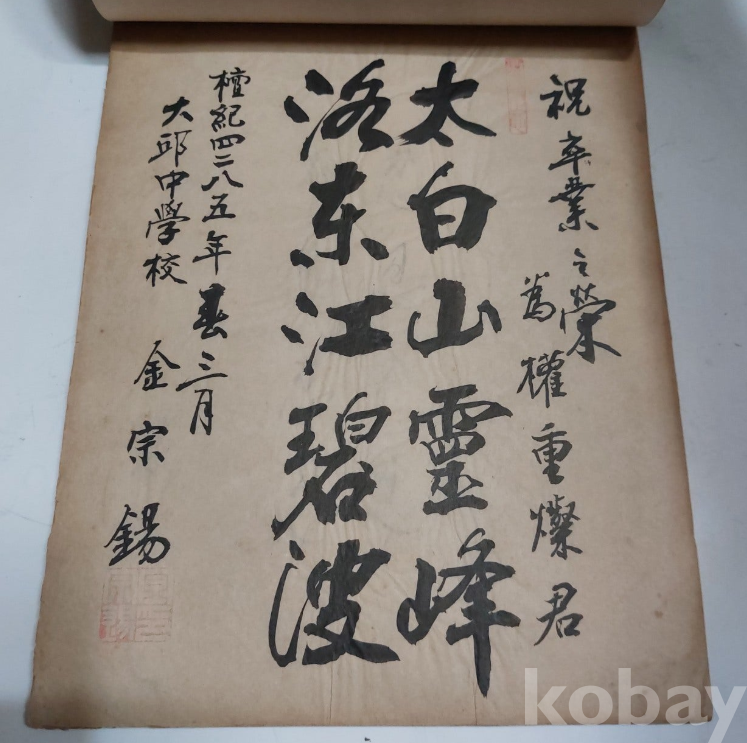 祝卒業之榮
為權重燦君
太白山靈峰
洛东江碧波
檀紀四二八五年春三月
大邱中學校
金宗錫
kobay